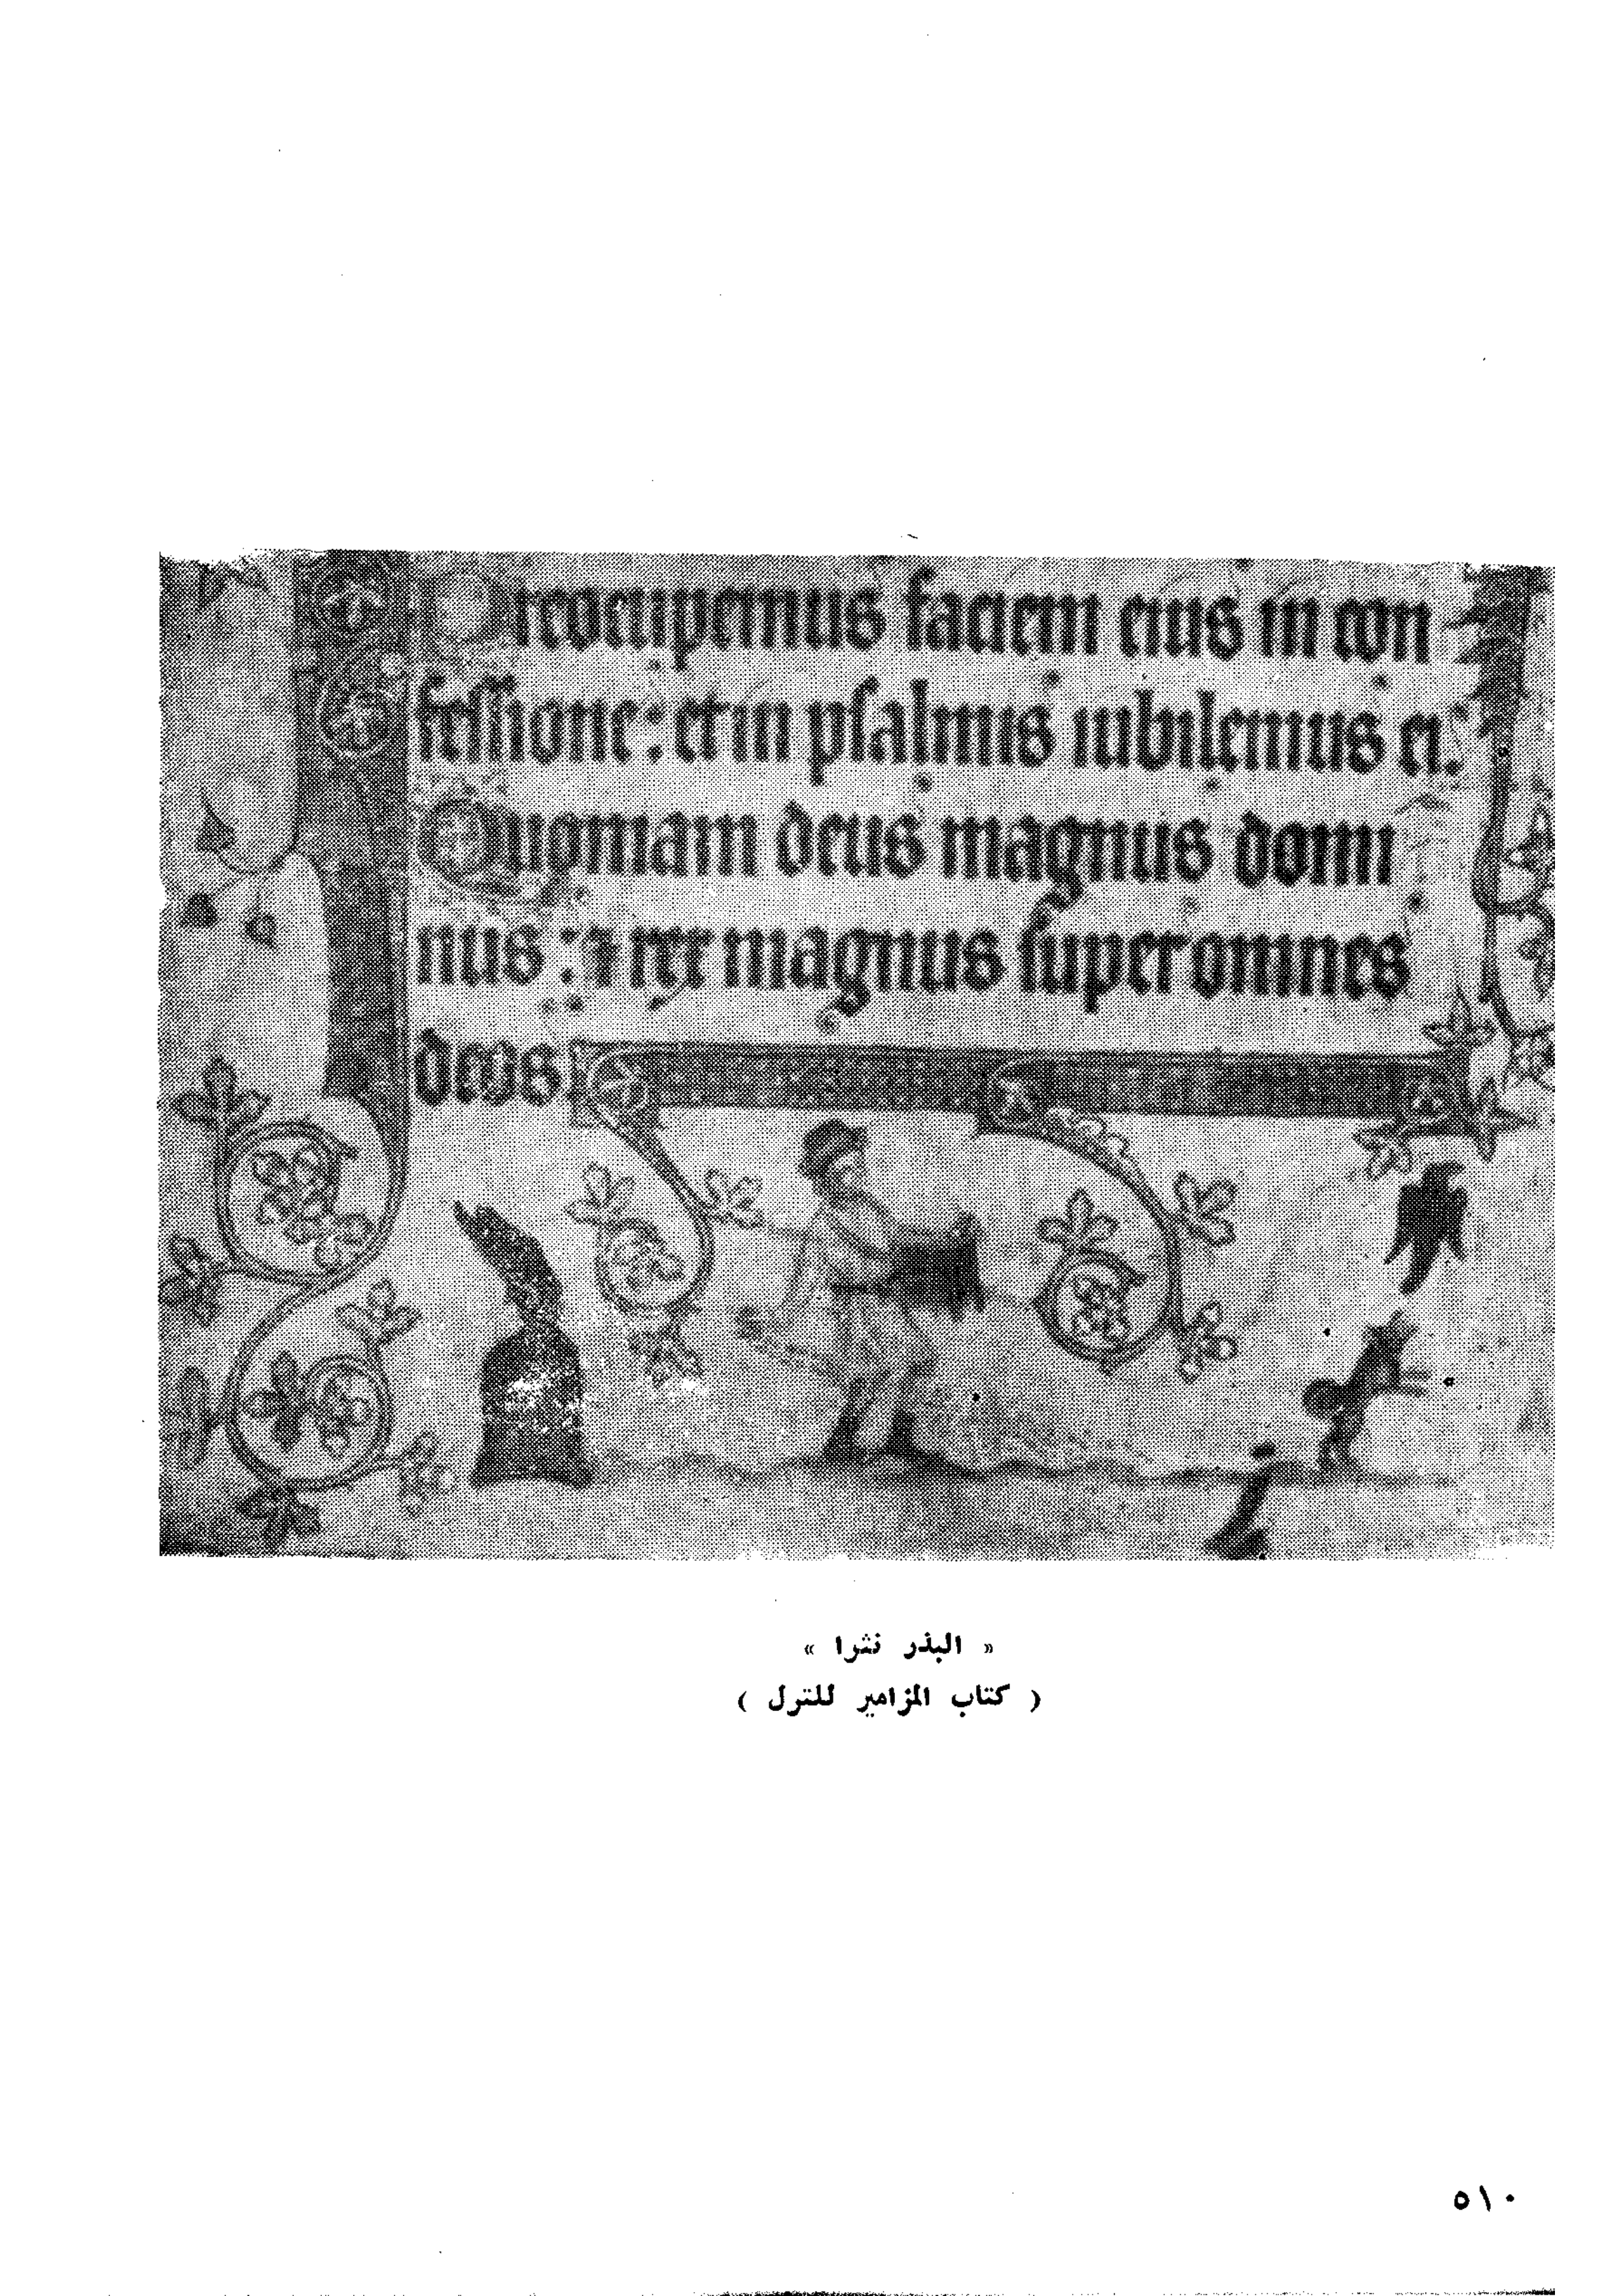 Preocupemus faciem eius in con
fessione: et in psalmis iubilemus ei.
Quoniam deus magnus domi
nus: et rex magnus super omnes
deos
« البذر نثرا »
( كتاب المزامير للترل )
٥١٠